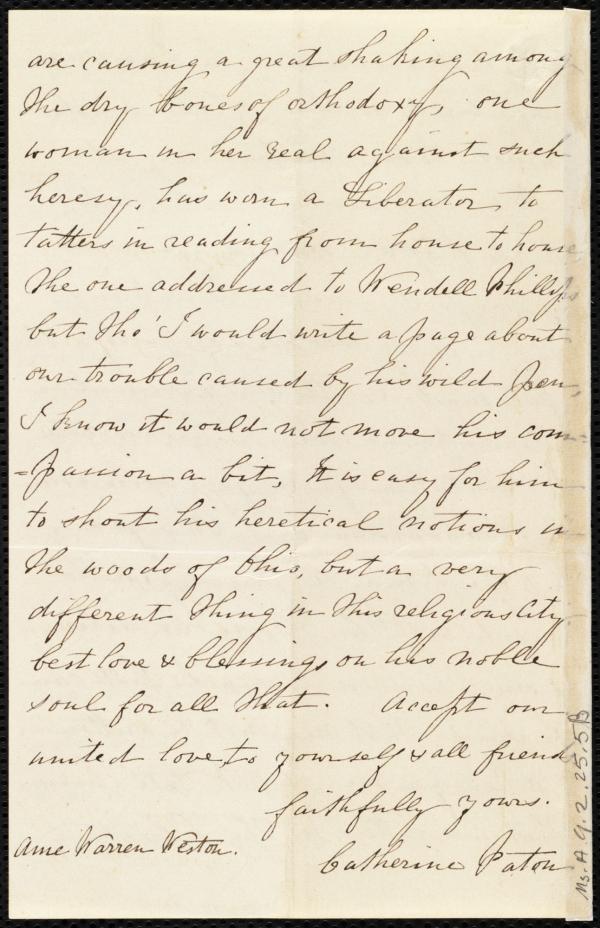 are causing a great shaking among
the dry bones of orthodoxy, one
woman in her zeal against such
heresy, has worn a Liberator to
tatters in reading from house to house
the one addressed to Wendell Phillips
but tho' I would write a page about
our trouble caused by his wild pen,
I know it would not move his com=
=passion a bit, It is easy for him
to shout his heretical notions in
the woods of Ohio, but a very
different thing in this religious City.
best love & blessings on his noble
soul for all that. Accept our
united love to yourself & all friends
faithfully yours.
Catherine Paton
Anne Warren Weston.
Ms. A. 9. 2. 25. 5B